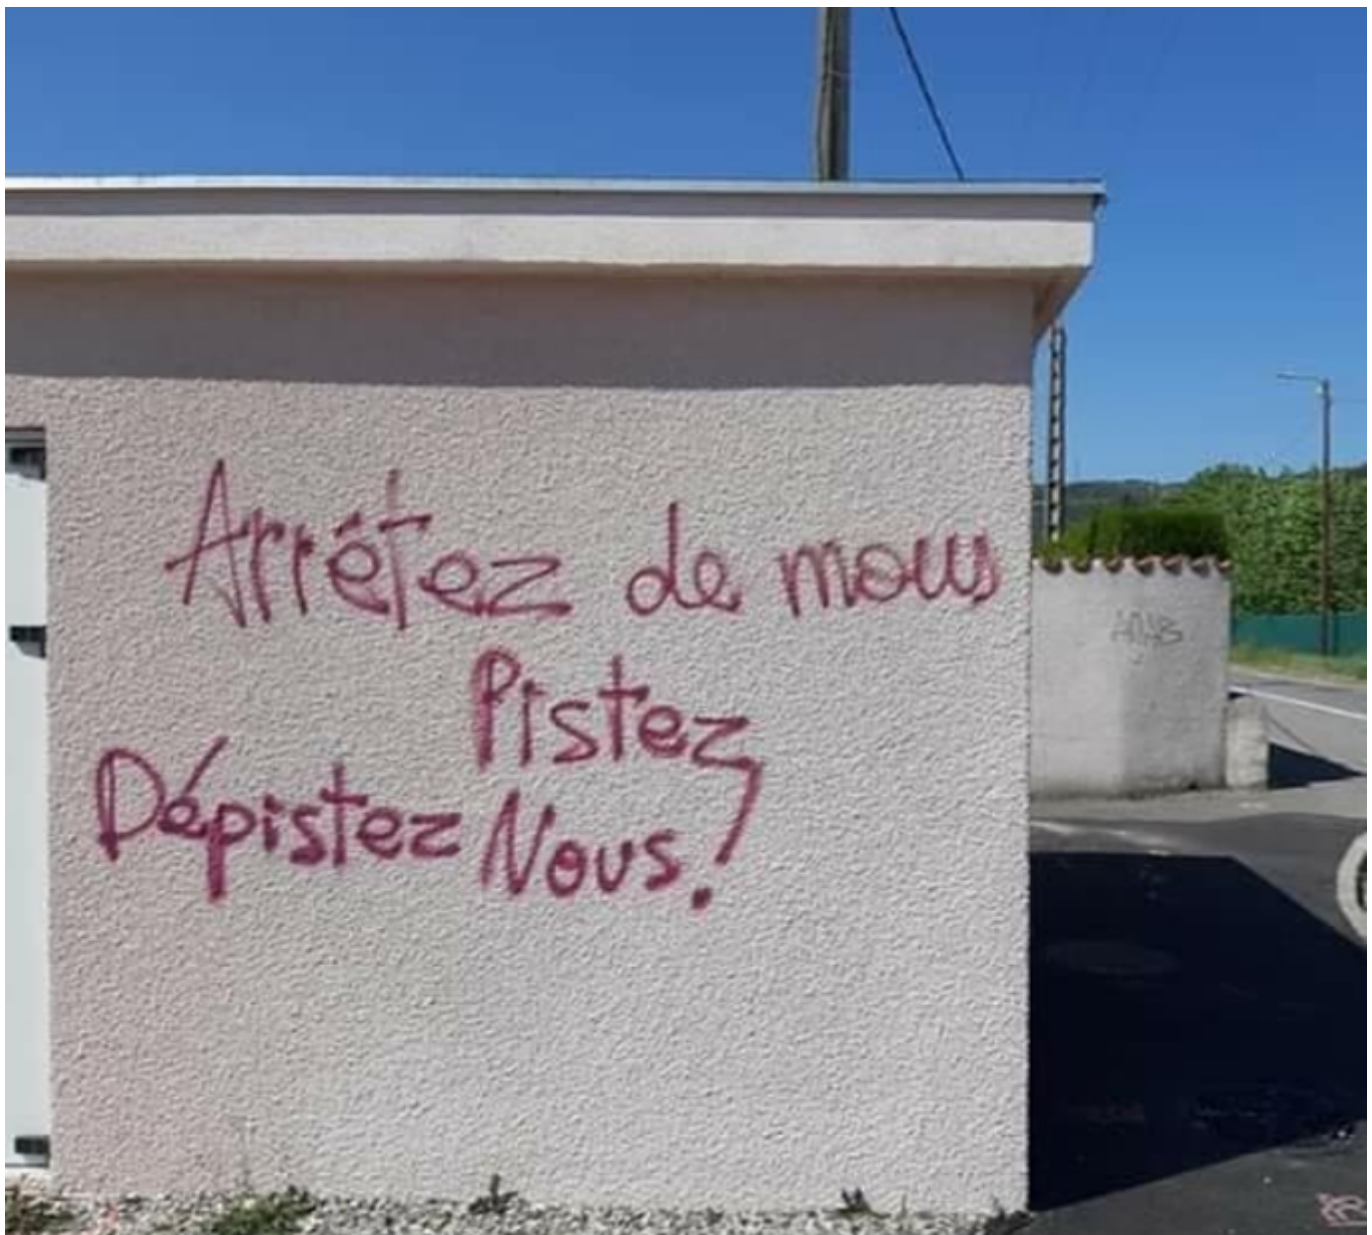 Arrêtez de nous
Pistez
Dépistez Nous!